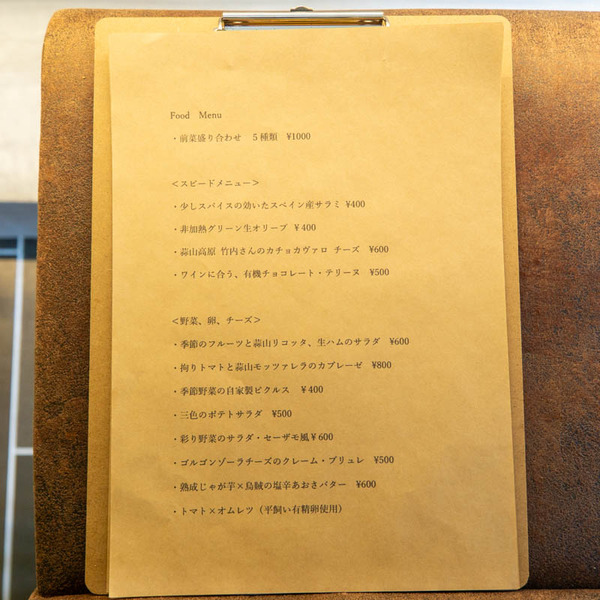 Food Menu
・前菜盛り合わせ 5種類 ¥1000
＜スピードメニュー＞
・少しスパイスの効いたスペイン産サラミ ¥400
・非加熱グリーン生オリーブ ¥400
・蒜山高原 竹内さんのカチョカヴァロ チーズ ¥600
・ワインに合う、有機チョコレート・テリーヌ ¥500
＜野菜、卵、チーズ＞
・季節のフルーツと蒜山リコッタ、生ハムのサラダ ¥600
・拘りトマトと蒜山モッツァレラのカプレーゼ ¥800
・季節野菜の自家製ピクルス ¥400
・三色のポテトサラダ ¥500
・彩り野菜のサラダ・セーザモ風¥600
・ゴルゴンゾーラチーズのクレーム・ブリュレ ¥500
・熟成じゃが芋×烏賊の塩辛あおさバター ¥600
・トマト×オムレツ（平飼い有精卵使用）